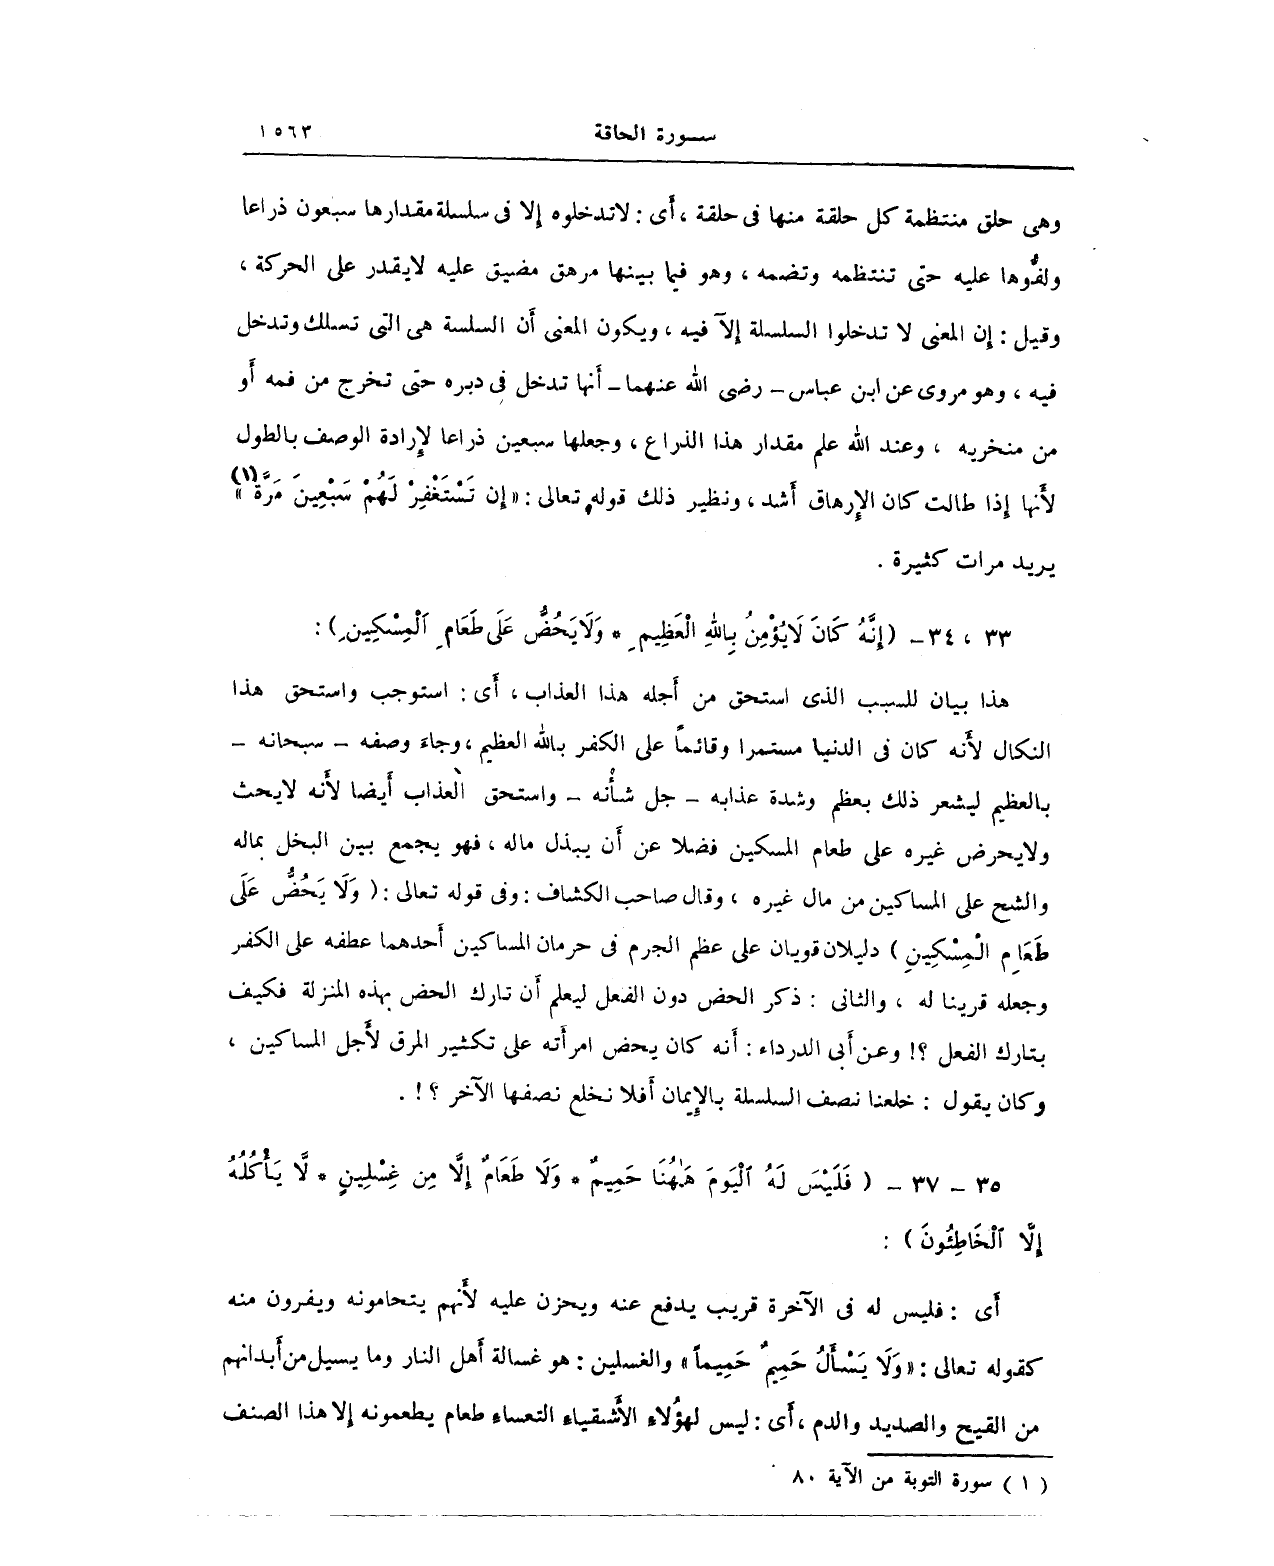 سورة الحاقة ١٥٦٣
وهى حلق منتظمة كل حلقة منها فى حلقة ، أى : لاتدخلوه إلا فى سلسلة مقدارها سبعون ذراعا
ولفُّوها عليه حتى تنتظمه وتضمه ، وهو فيما بينها مرهق مضيق عليه لايقدر على الحركة ،
وقيل : إن المعنى لا تدخلوا السلسلة إلآ فيه ، ويكون المعنى أن السلسة هى التى تسلك وتدخل
فيه ، وهو مروى عن ابن عباس – رضى الله عنهما – أنها تدخل فى دبره حتى تخرج من فمه أو
من منخريه ، وعند الله علم مقدار هذا الذراع ، وجعلها سبعين ذراعا لإرادة الوصف بالطول
لأنها إذا طالت كان الإرهاق أشد ، ونظير ذلك قوله تعالى : « إِن تَسْتَغْفِرْ لَهُمْ سَبْعِينَ مَرَّةً (١) »
يريد مرات كثيرة .
٣٣ ، ٣٤ – (إِنَّهُ كَانَ لَايُؤْمِنُ بِاللهِ الْعَظِيمِ * وَلَايَحُضُّ عَلَى طَعَامِ ٱلْمِسْكِينِ) :
هذا بيان للسبب الذى استحق من أجله هذا العذاب ، أى : استوجب واستحق هذا
النكال لأنه كان فى الدنيا مستمرا وقائمًا على الكفر بالله العظيم ، وجاء وصفه – سبحانه –
بالعظيم ليشعر ذلك بعظم وشدة عذابه – جل شأنه – واستحق العذاب أيضا لأنه لايحث
ولايحرض غيره على طعام المسكين فضلا عن أن يبذل ماله ، فهو يجمع بين البخل بماله
والشح على المساكين من مال غيره ، وقال صاحب الكشاف : وفى قوله تعالى : ( وَلَا يَحُضُّ عَلَى
طَعَامِ الْمِسْكِينِ ) دليلان قويان على عظم الجرم فى حرمان المساكين أحدهما عطفه على الكفر
وجعله قرينا له ، والثانى : ذكر الحض دون الفعل ليعلم أن تارك الحض بهذه المنزلة فكيف
بتارك الفعل ؟! وعن أبى الدرداء : أنه كان يحض امرأته على تكثير المرق لأجل المساكين ،
وكان يقول : خلعنا نصف السلسلة بالإيمان أفلا نخلع نصفها الآخر ؟! .
٣٥ – ٣٧ – ( فَلَيْسَ لَهُ ٱلْيَوْمَ هَٰهُنَا حَمِيمٌ * وَلَا طَعَامٌ إِلَّا مِن غِسْلِينٍ * لَّا يَأْكُلُهُ
إِلَّا ٱلْخَاطِئُونَ ) :
أى : فليس له فى الآخرة قريب يدفع عنه ويحزن عليه لأنهم يتحامونه ويفرون منه
كقوله تعالى : « وَلَا يَسْأَلُ حَمِيمٌ حَمِيماً » والغسلين : هو غسالة أهل النار وما يسيل من أبدانهم
من القيح والصديد والدم ، أى : ليس لهؤلاء الأشقياء التعساء طعام يطعمونه إلا هذا الصنف
( ١ ) سورة التوبة من الآية ٨٠